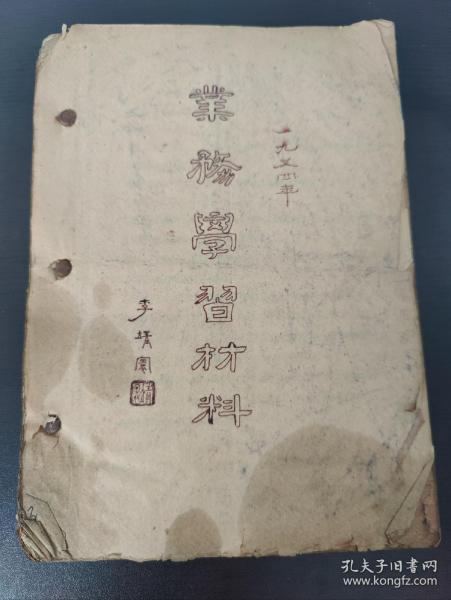 一九五四年
業務學習材料
李靖寰
孔夫子旧书网
www.kongfz.com